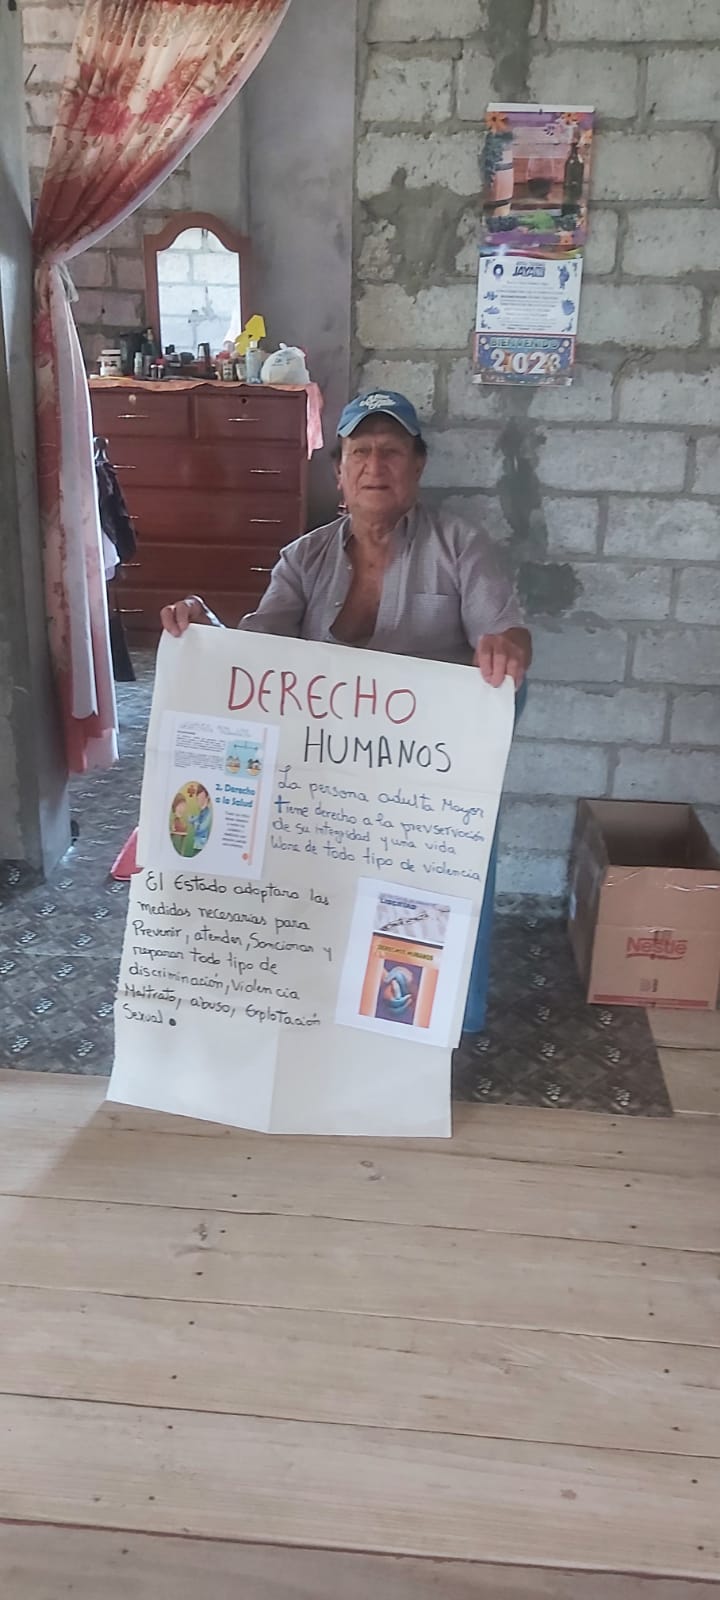 JAYA
BIENVENIDO
2023
DERECHO
HUMANOS
2. Derecho
a la Salud
La persona adulta Mayor
tiene derecho a la prevservación
de su integridad y una vida
libre de todo tipo de violencia
El Estado adoptara las
medidas necesarias para
Prevenir, atender, Sancionar y
reparar todo tipo de
discriminación, Violencia
Maltrato, abuso, Explotación
Sexual.
LIBERTAD
DERECHOS HUMANOS
Nestlé